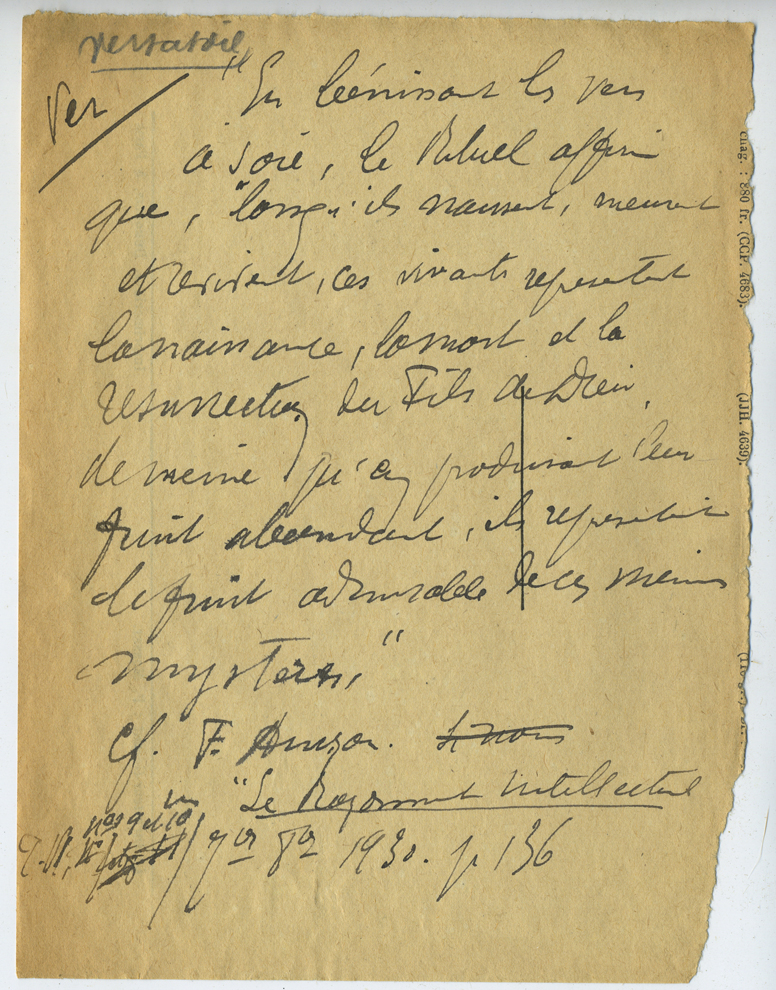 ver à soie
Ver
"En bénissant les vers
à soie, le Rituel affirme
que, "lorsqu'ils naissent, meurent
et revivent, ces vivants représentent
la naissance, la mort et la
résurrection du Fils de Dieu,
de même qu'en produisant leur
fruit abondant, ils représentent
le fruit admirable de ces mêmes
mystères."
cf. F. 
in "Le Rayonnement Intellectuel
nos 9 et 10
7bre 8bre 1930. p 136
chag. : 880 fr. (CGP. 4683).
(JJH. 4639).